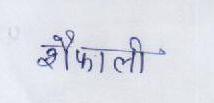 शैफाली